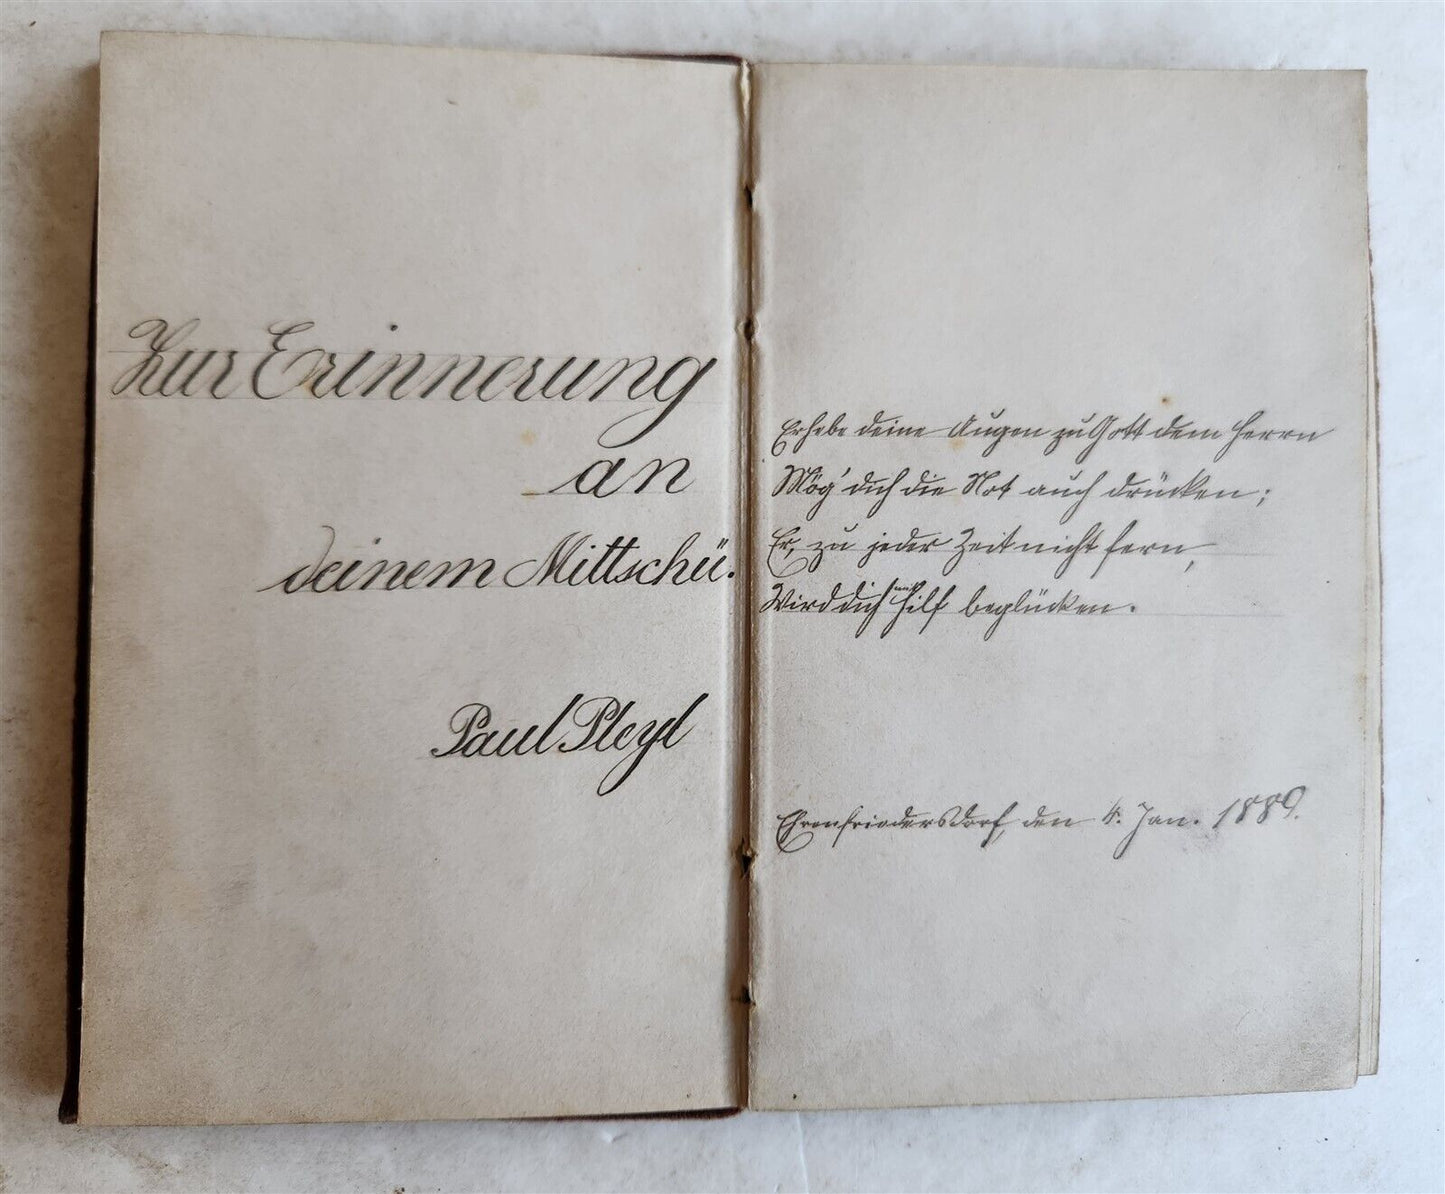 Zur Erinnerung
an
deinem Mittschü.
Paul Pleyl
Erhebe deine Augen zu Gott dem Herrn
Mög' dich die Not auch drücken;
Er, zu jeder Zeit nicht fern,
Wird dich mit Hilf beglücken.
Ehrenfriedersdorf, den 4. Jan. 1889.